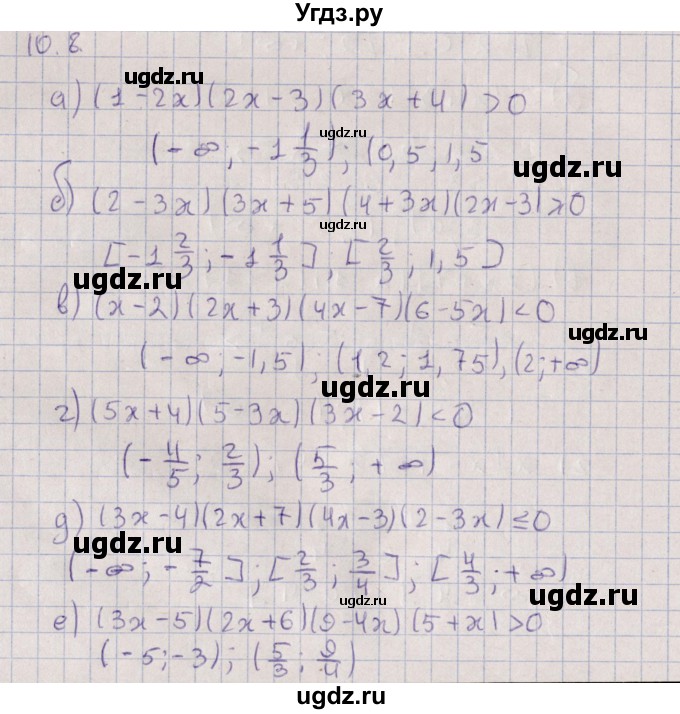 Угдз.ру
10.8.
а) (1-2x)(2x-3)(3x+4)>0
(-∞; -1 1/3); (0,5; 1,5
б) (2-3x)(3x+5)(4+3x)(2x-3)≥0
[-1 2/3; -1 1/3]; [2/3; 1,5]
в) (x-2)(2x+3)(4x-7)(6-5x)<0
(-∞; -1,5); (1,2; 1,75), (2; +∞)
г) (5x+4)(5-3x)(3x-2)<0
(-4/5; 2/3); (5/3; +∞)
д) (3x-4)(2x+7)(4x-3)(2-3x)≤0
(-∞; -7/2]; [2/3; 3/4]; [4/3; +∞)
е) (3x-5)(2x+6)(9-4x)(5+x)>0
(-5; -3); (5/3; 9/4)
ugdz.ru
ugdz.ru
ugdz.ru
ugdz.ru
ugdz.ru
ugdz.ru
ugdz.ru
ugdz.ru
ugdz.ru
ugdz.ru
ugdz.ru
ugdz.ru
ugdz.ru